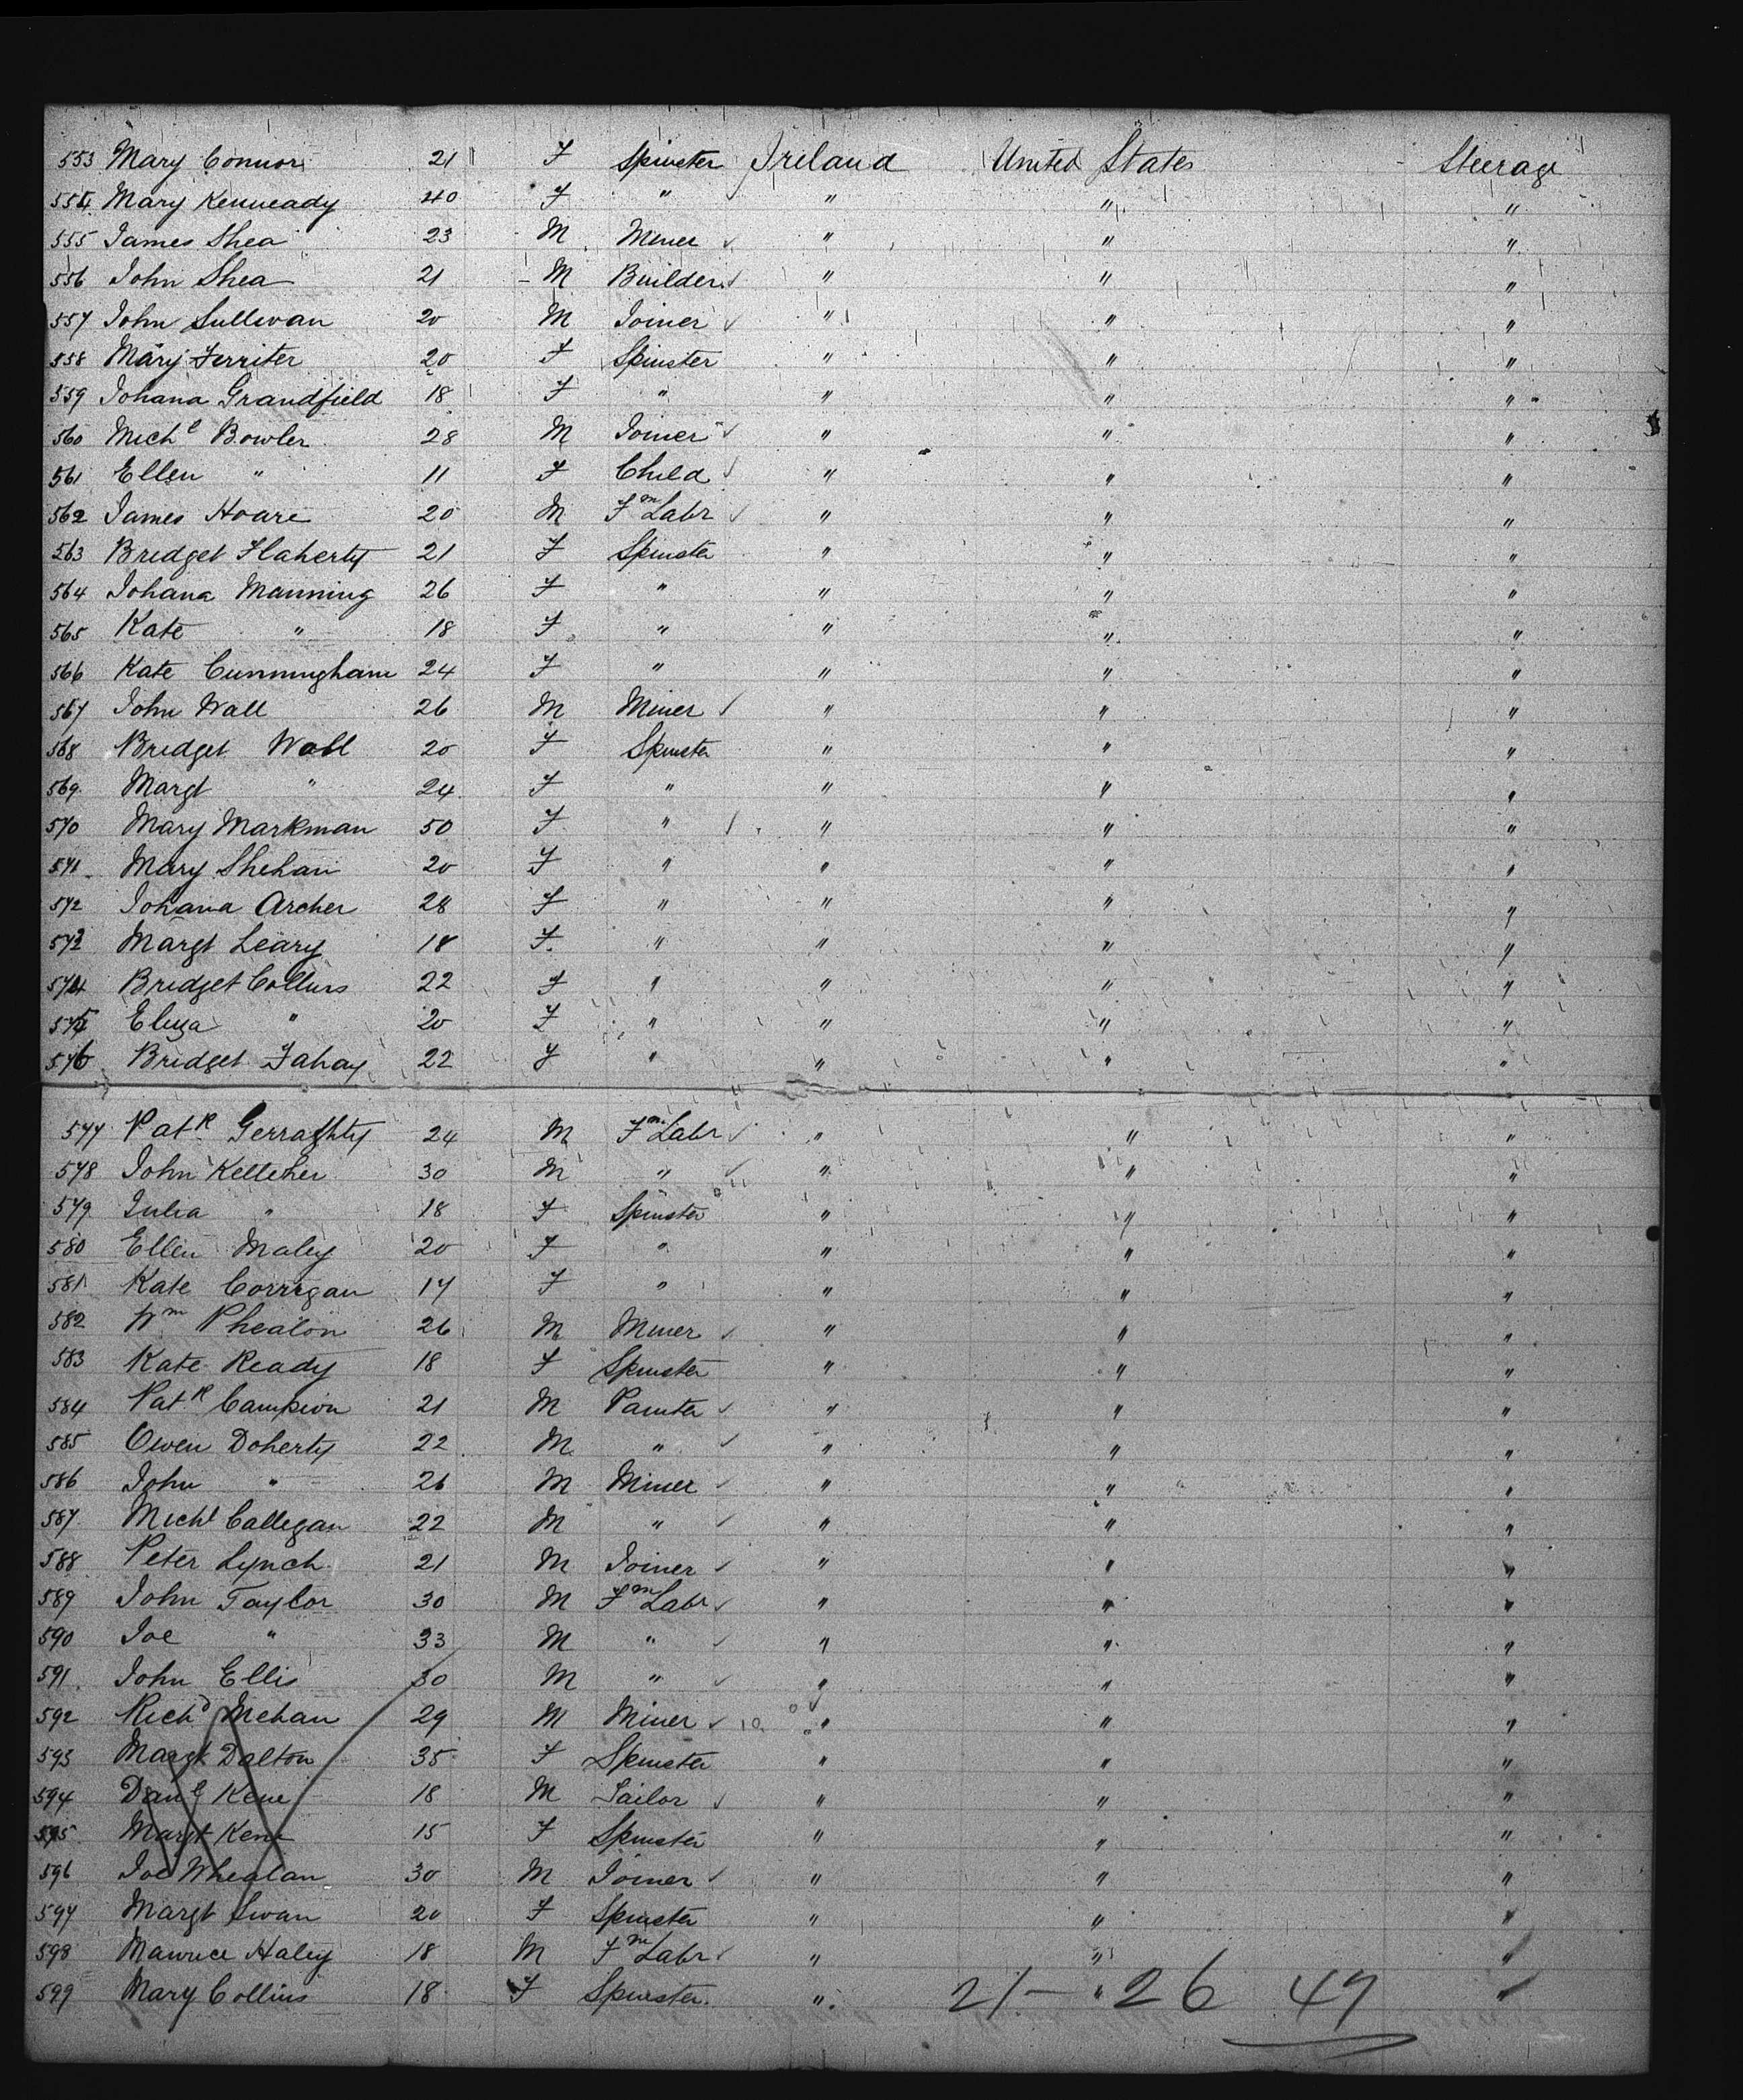 553 Mary Connor 21 F Spinster Ireland United States Steerage
554 Mary Kenneady 40 F " " " "
555 James Shea 23 M Miner " " "
556 John Shea 21 M Builder " " "
557 John Sullivan 20 M Joiner " " "
558 Mary Ferriter 20 F Spinster " " "
559 Johana Grandfield 18 F " " " "
560 Michl Bowler 28 M Joiner " " "
561 Ellen " 11 F Child " " "
562 James Hoare 20 M Fm Labr " " "
563 Bridget Flaherty 21 F Spinster " " "
564 Johana Manning 26 F " " " "
565 Kate " 18 F " " " "
566 Kate Cunningham 24 F " " " "
567 John Wall 26 M Miner " " "
568 Bridget Wall 20 F Spinster " " "
569 Margt " 24 F " " " "
570 Mary Markman 50 F " " " "
571 Mary Shehan 20 F " " " "
572 Johana Archer 28 F " " " "
573 Margt Leary 18 F " " " "
574 Bridget Collins 22 F " " " "
575 Eliza " 20 F " " " "
576 Bridget Fahay 22 F " " " "
577 Patk Gerraghty 24 M Fm Labr " " "
578 John Kelleher 30 M " " " "
579 Julia " 18 F Spinster " " "
580 Ellen Maley 20 F " " " "
581 Kate Corrigan 17 F " " " "
582 Wm Phealon 26 M Miner " " "
583 Kate Ready 18 F Spinster " " "
584 Patk Campion 21 M Painter " " "
585 Owen Doherty 22 M " " " "
586 John " 26 M Miner " " "
587 Michl Callegan 22 M " " " "
588 Peter Lynch 21 M Joiner " " "
589 John Taylor 30 M Fm Labr " " "
590 Joe " 33 M " " " "
591 John Ellis 30 M " " " "
592 Richd Mehan 29 M Miner " " "
593 Margt Dalton 35 F Spinster " " "
594 Danl Kene 18 M Sailor " " "
595 Margt Kene 15 F Spinster " " "
596 Joe Whealan 30 M Joiner " " "
597 Margt Swan 20 F Spinster " " "
598 Maurice Haley 18 M Fm Labr " " "
599 Mary Collins 18 F Spinster " " "
21 - 26 47